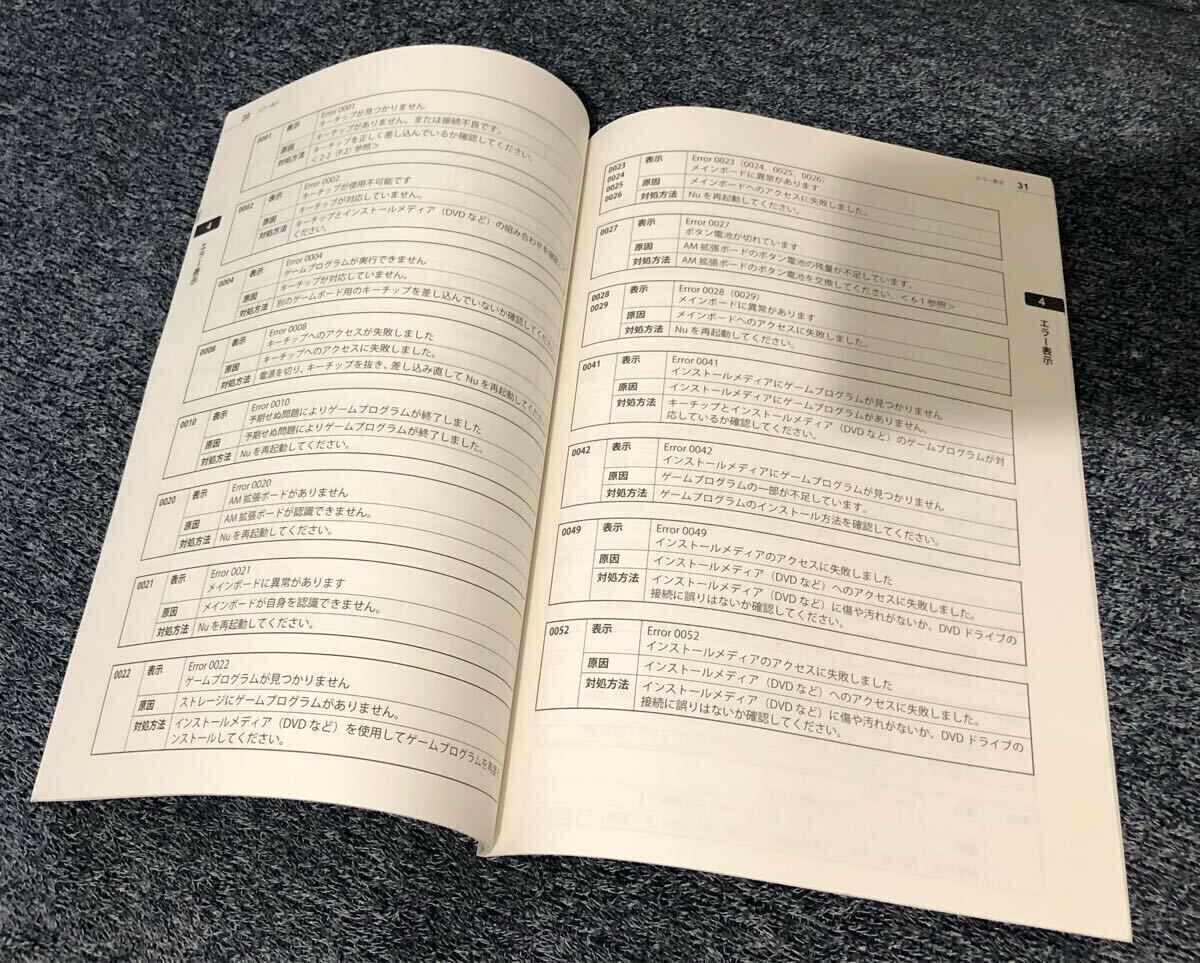 30
エラー表示
0001
表示
Error 0001
キーチップが見つかりません
原因
キーチップがありません。または接続不良です。
対処方法
キーチップを正しく差し込んでいるか確認してください。
＜2-2（P.2）参照＞
0002
表示
Error 0002
キーチップが使用不可能です
原因
キーチップが対応していません。
対処方法
キーチップとインストールメディア（DVDなど）の組み合わせを確認して
ください。
0004
表示
Error 0004
ゲームプログラムが実行できません
原因
キーチップが対応していません。
対処方法
別のゲームボード用のキーチップを差し込んでいないか確認してくださ
0008
表示
Error 0008
キーチップへのアクセスが失敗しました
原因
キーチップへのアクセスに失敗しました。
対処方法
電源を切り、キーチップを抜き、差し込み直してNuを再起動してくださ
0010
表示
Error 0010
予期せぬ問題によりゲームプログラムが終了しました
原因
予期せぬ問題によりゲームプログラムが終了しました。
対処方法
Nuを再起動してください。
0020
表示
Error 0020
AM拡張ボードがありません
原因
AM拡張ボードが認識できません。
対処方法
Nuを再起動してください。
0021
表示
Error 0021
メインボードに異常があります
原因
メインボードが自身を認識できません。
対処方法
Nuを再起動してください。
0022
表示
Error 0022
ゲームプログラムが見つかりません
原因
ストレージにゲームプログラムがありません。
対処方法
インストールメディア（DVDなど）を使用してゲームプログラムを再度イ
ンストールしてください。
4
エラー表示
エラー表示
31
0023
0024
0025
0026
表示
Error 0023（0024、0025、0026）
メインボードに異常があります
原因
メインボードへのアクセスに失敗しました。
対処方法
Nuを再起動してください。
0027
表示
Error 0027
ボタン電池が切れています
原因
AM拡張ボードのボタン電池の残量が不足しています。
対処方法
AM拡張ボードのボタン電池を交換してください。＜6-1参照＞
0028
0029
表示
Error 0028（0029）
メインボードに異常があります
原因
メインボードへのアクセスに失敗しました。
対処方法
Nuを再起動してください。
0041
表示
Error 0041
インストールメディアにゲームプログラムが見つかりません
原因
インストールメディアにゲームプログラムがありません。
対処方法
キーチップとインストールメディア（DVDなど）のゲームプログラムが対
応しているか確認してください。
0042
表示
Error 0042
インストールメディアにゲームプログラムが見つかりません
原因
ゲームプログラムの一部が不足しています。
対処方法
ゲームプログラムのインストール方法を確認してください。
0049
表示
Error 0049
インストールメディアのアクセスに失敗しました
原因
インストールメディア（DVDなど）へのアクセスに失敗しました。
対処方法
インストールメディア（DVDなど）に傷や汚れがないか、DVDドライブの
接続に誤りはないか確認してください。
0052
表示
Error 0052
インストールメディアのアクセスに失敗しました
原因
インストールメディア（DVDなど）へのアクセスに失敗しました。
対処方法
インストールメディア（DVDなど）に傷や汚れがないか、DVDドライブの
接続に誤りはないか確認してください。
4
エラー表示